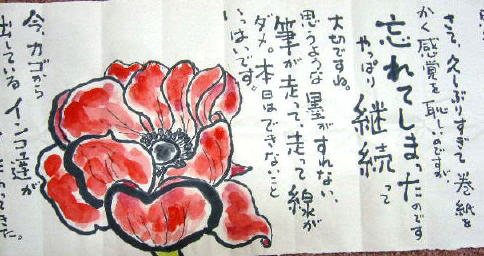 さて、久しぶりすぎて巻紙を
かく感覚を恥しいのですが
忘れてしまったのです
やっぱり継続って
大切ですね。
思うような墨がすれない、
筆が走って、走って線が
ダメ。本日はできないこと
いっぱいです。
今、カゴから
出しているインコ達が